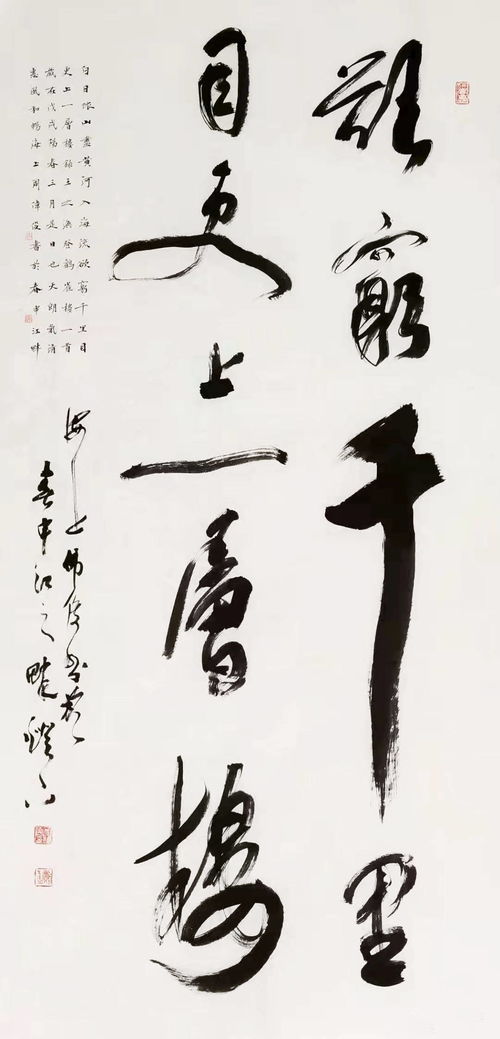 欲窮千里
目更上一層樓
白日依山盡黃河入海流欲窮千里目
更上一層樓錄王之渙登鸛雀樓一首
歲在戊戌陽春三月是日也天朗氣清
惠風和暢海上周偉俊書於春申江畔
海上偉俊書於
春申江之畔燈下